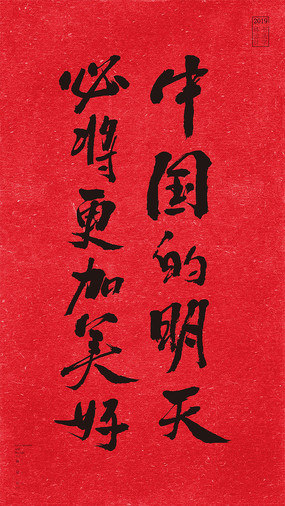 中国的明天
必将更加美好
2019